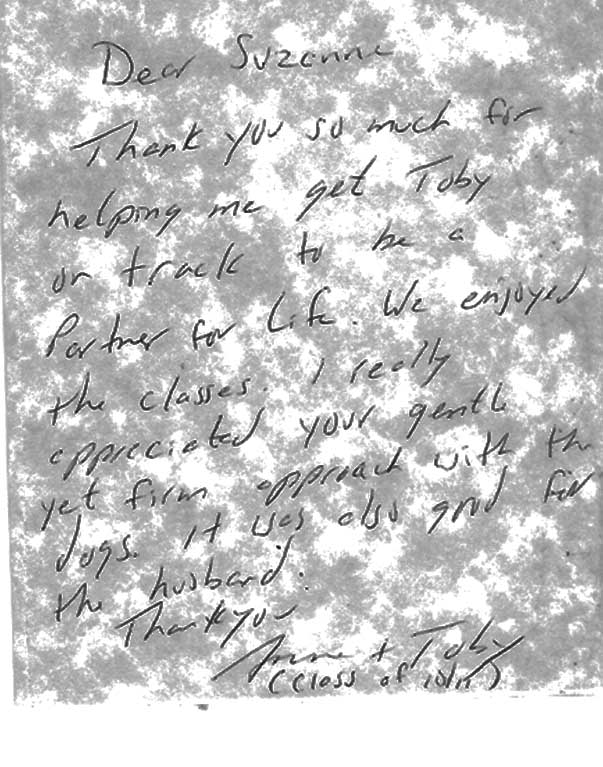 Dear Suzanne
Thank you so much for
helping me get Toby
on track to be a
Partner for Life. We enjoyed
the classes. I really
appreciated your gentle
yet firm approach with the
dogs. It was also good for
the husband.
Thankyou
+ Toby
(Class of